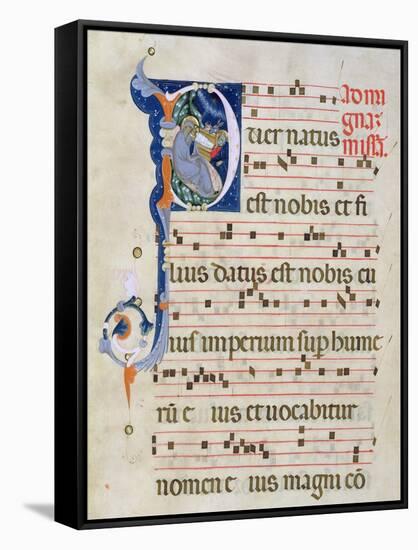 Puer natus
ad m
gnaz
missā.
est nobis et fi
lius datus est nobis cu
ius imperium sup hume
rū e ius et uocabitur
nomen e ius magni cō